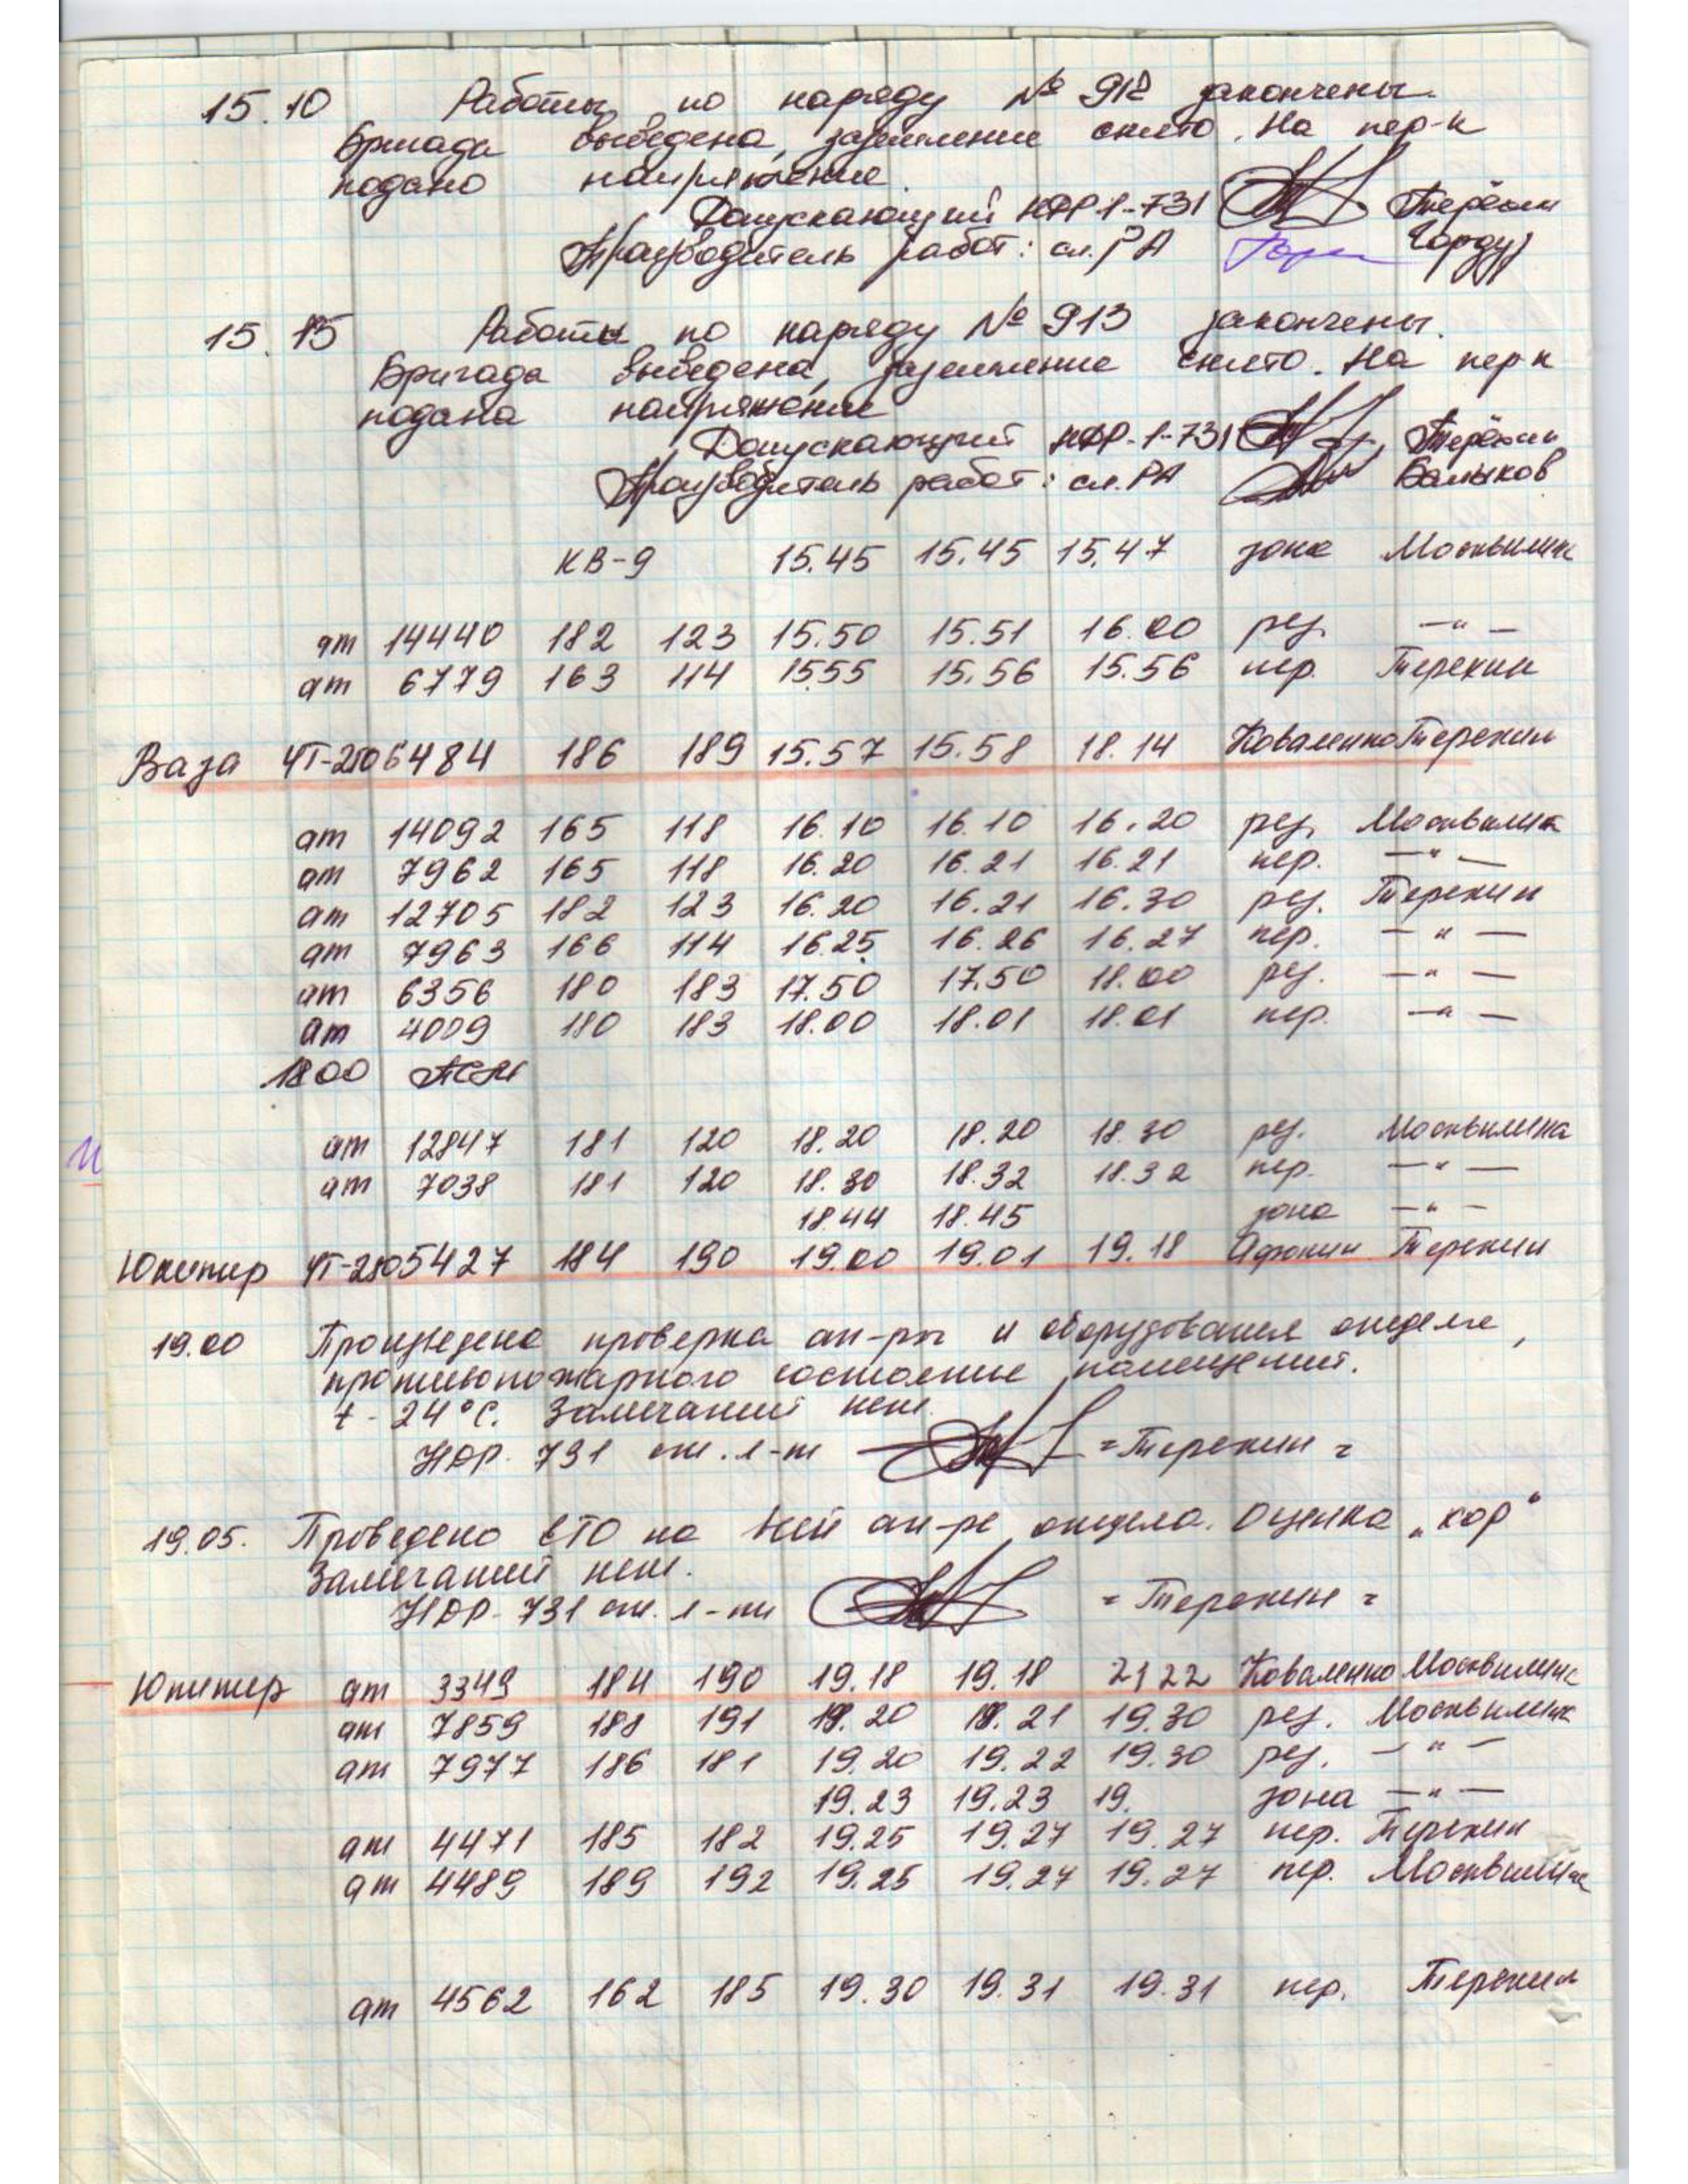 15.10 Работы по наряду № 912 закончены.
Бригада выведена, заземление снято. На пер-к
подано напряжение.
Допускающий НДР-1-731 Терёхин
Производитель работ: сл. РА
15.15 Работы по наряду № 913 закончены.
Бригада выведена, заземление снято. На пер-к
подано напряжение
Допускающий НДР-1-731 Терёхин
Производитель работ: сл. РА Балыков
КВ-9 15.45 15.45 15.47 зона Москвилина
ат 14440 182 123 15.50 15.51 16.00 рез. —"—
ат 6779 163 114 1555 15.56 15.56 пер. Терехин
Ваза ЧТ-250 6484 186 189 15.57 15.58 18.14 Коваленко Терехин
ат 14092 165 118 16.10 16.10 16.20 рез. Москвилина
ат 7962 165 118 16.20 16.21 16.21 пер. —"—
ат 12705 182 123 16.20 16.21 16.30 рез. Терехин
ат 7963 166 114 16.25 16.26 16.27 пер. —"—
ат 6356 180 183 17.50 17.50 18.00 рез. —"—
ат 4009 180 183 18.00 18.01 18.01 пер. —"—
18.00
ат 12847 181 120 18.20 18.20 18.30 рез. Москвилина
ат 7038 181 120 18.30 18.32 18.32 пер. —"—
18.44 18.45 зона —"—
Юпитер ЧТ-250 5427 184 190 19.00 19.01 19.18 Афонин Терехин
19.00 Произведена проверка ап-ры и оборудования отделе,
противопожарного состояние помещений.
t - 24°С. Замечаний нет.
НДР-731 ст. л-т = Терехин =
19.05. Проведено ЕТО на всей ап-ре отдела. Оценка "хор"
Замечаний нет.
НДР-731 ст. л-т = Терехин =
Юпитер ат 3349 184 190 19.18 19.18 21 22 Коваленко Москвилина
ат 7859 188 191 19.20 19.21 19.30 рез. Москвилина
ат 7977 186 181 19.20 19.22 19.30 рез. —"—
19.23 19.23 19. зона —"—
ат 4471 185 182 19.25 19.27 19.27 пер. Терехин
ат 4489 189 192 19.25 19.27 19.27 пер. Москвилина
ат 4562 162 185 19.30 19.31 19.31 пер. Терехин